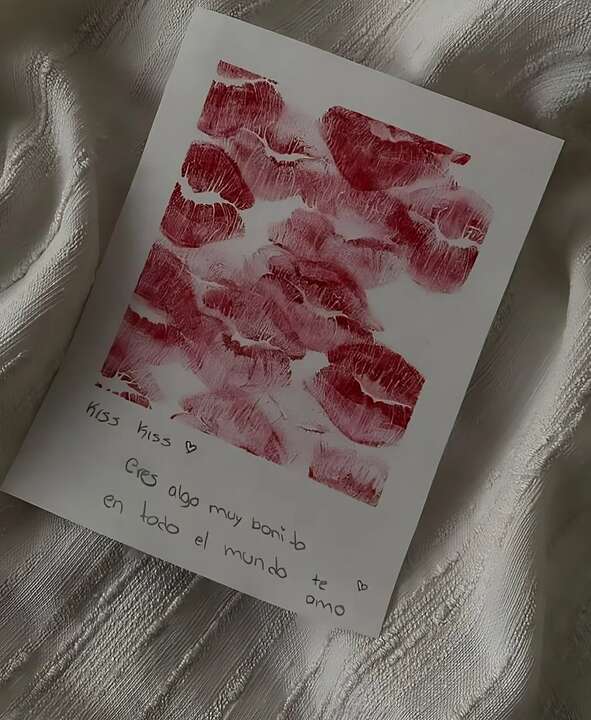 Kiss Kiss ♡
Eres algo muy bonito
en todo el mundo te ♡
amo